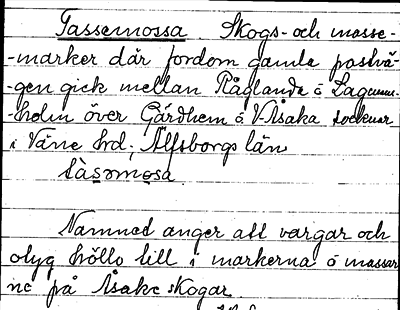 Tassemossa. Skogs- och mosse-
-marker där fordom gamla postvä-
-gen gick mellan Råglanda o Lagmans-
-holm över Gärdhem o V-Åsaka socknar
i Väne hrd; Älfsborgs län
tàsəmɷsa
Namned anger att vargar och
otyg höllo till i markerna o mossar
ne på Åsake skogar.